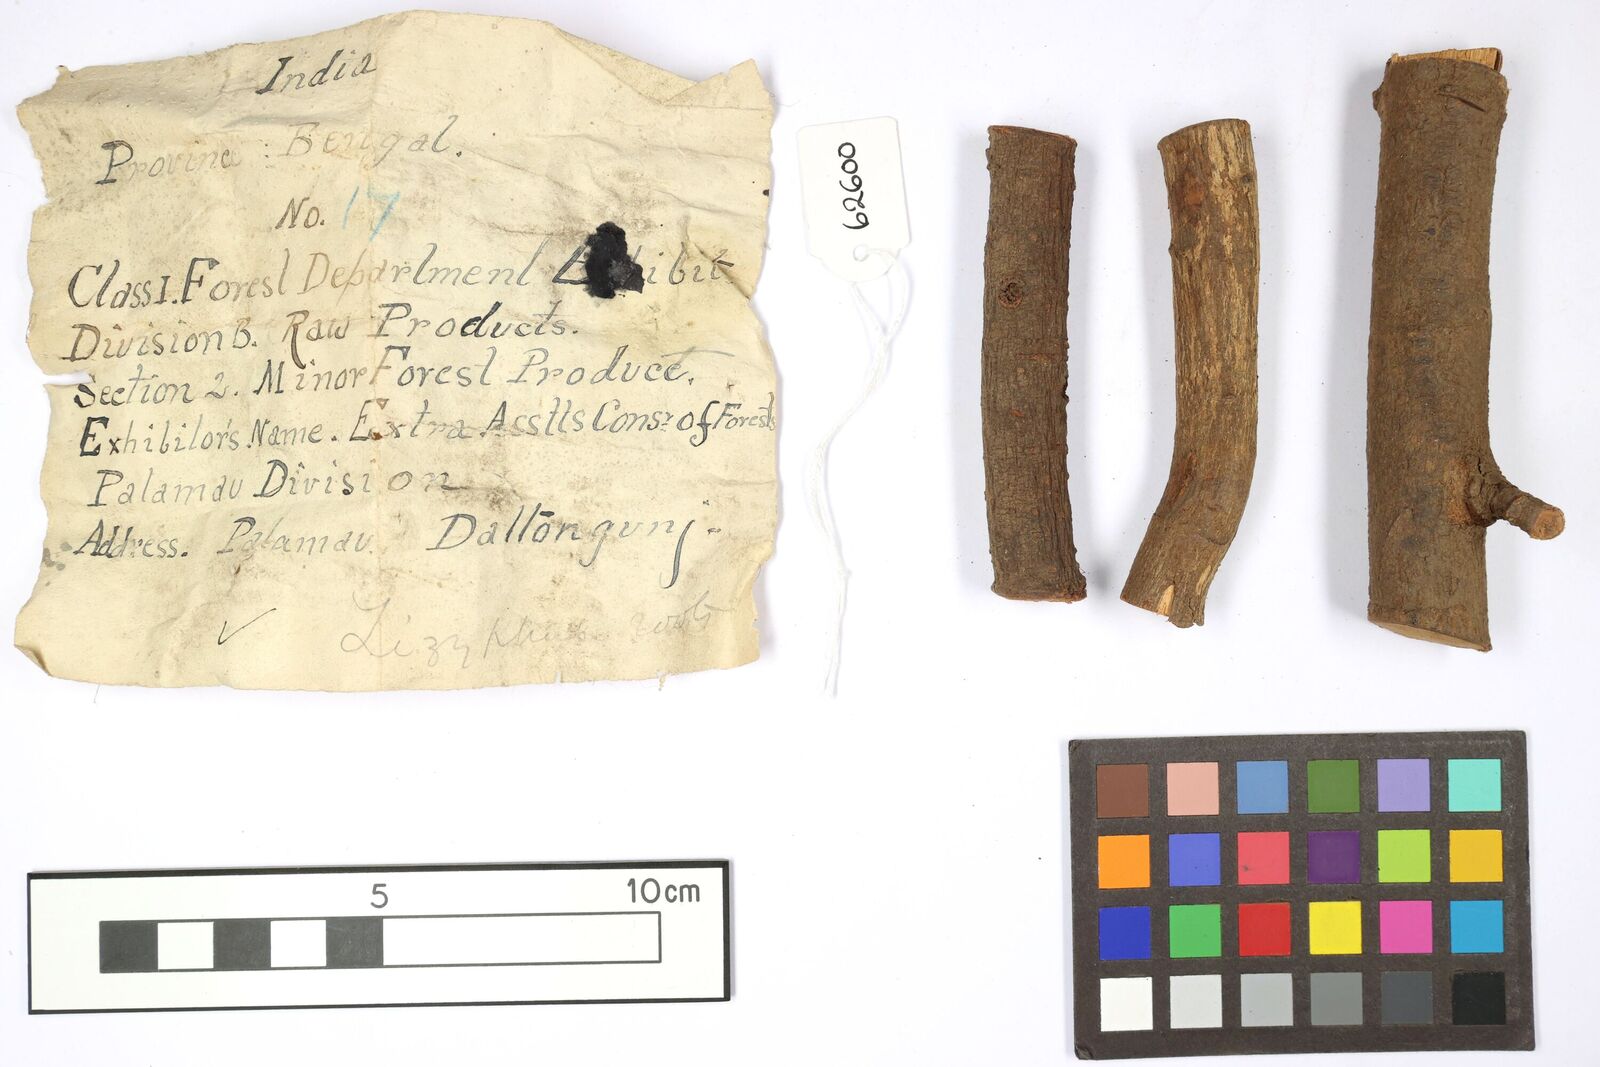 India
Province : Bengal.
No. 17
Class I. Forest Department Exhibit
Division B. Raw Products.
Section 2. Minor Forest Product.
Exhibitor's Name. Extra Asstts Consr of Forests
Palamau Division
Address. Palamau. Daltongunj.
Zizyphus
62600
5 10cm